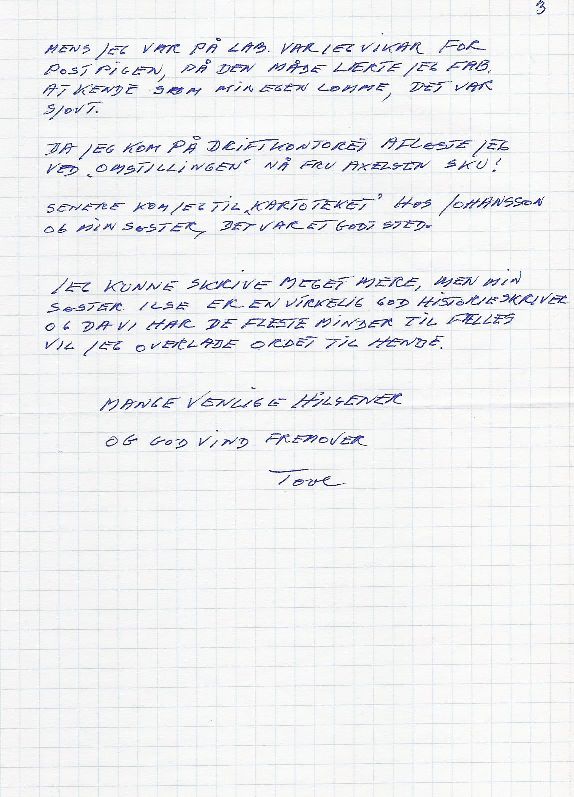 3
MENS JEG VAR PÅ LAB. VAR JEG VIKAR FOR
POSTPIGEN, PÅ DEN MÅDE LÆRTE JEG FAB.
AT KENDE SROM MIN EGEN LOMME, DET VAR
SJOVT.
DA JEG KOM PÅ DRIFTKONTORET AFLØSTE JEG
VED „OMSTILLINGEN" NÅ FRU AXELSEN SKU!
SENERE KOM JEG TIL „KARTOTEKET" HOS JOHANSSON
OG MIN SØSTER, DET VAR ET GODT STED.
JEG KUNNE SKRIVE MEGET MERE, MEN MIN
SØSTER ILSE ER EN VIRKELIG GOD HISTORIESKRIVER
OG DA VI HAR DE FLESTE MINDER TIL FÆLLES
VIL JEG OVERLADE ORDET TIL HENDE.
MANGE VENLIGE HILSENER
OG GOD VIND FREMOVER
Tove